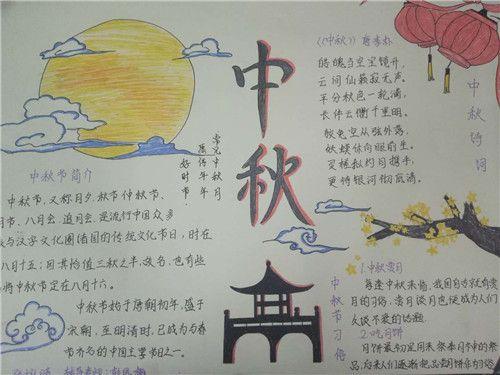 中秋
中秋节简介
中秋节,又称月夕、秋节、仲秋节、
月节、八月会、追月会、是流行中国众多
族与汉字文化圈诸国的传统文化节日,时在
八月十五;因其恰值三秋之半,故名,也有些
将中秋节定在八月十六。
中秋节始于唐朝初年,盛于
宋朝,至明清时,已成为与春
节齐名的中国主要节日之一。
《中秋》 唐李朴
皓魄当空宝镜升,
云间仙籁寂无声。
平分秋色一轮满,
长伴云衢千里明。
狡兔空从弦外落,
妖蟆休向眼前生。
灵槎拟约同携手,
更待银河彻底清。
中秋诗词
中秋节习俗
1.中秋赏月
每逢中秋来临,我国自古就有赏
月的习俗,赏月谈月也便成为人们
久谈不衰的话题。
2.吃月饼
月饼最初是用来祭奉月神的祭
品,后来人们逐渐把品尝月饼作为